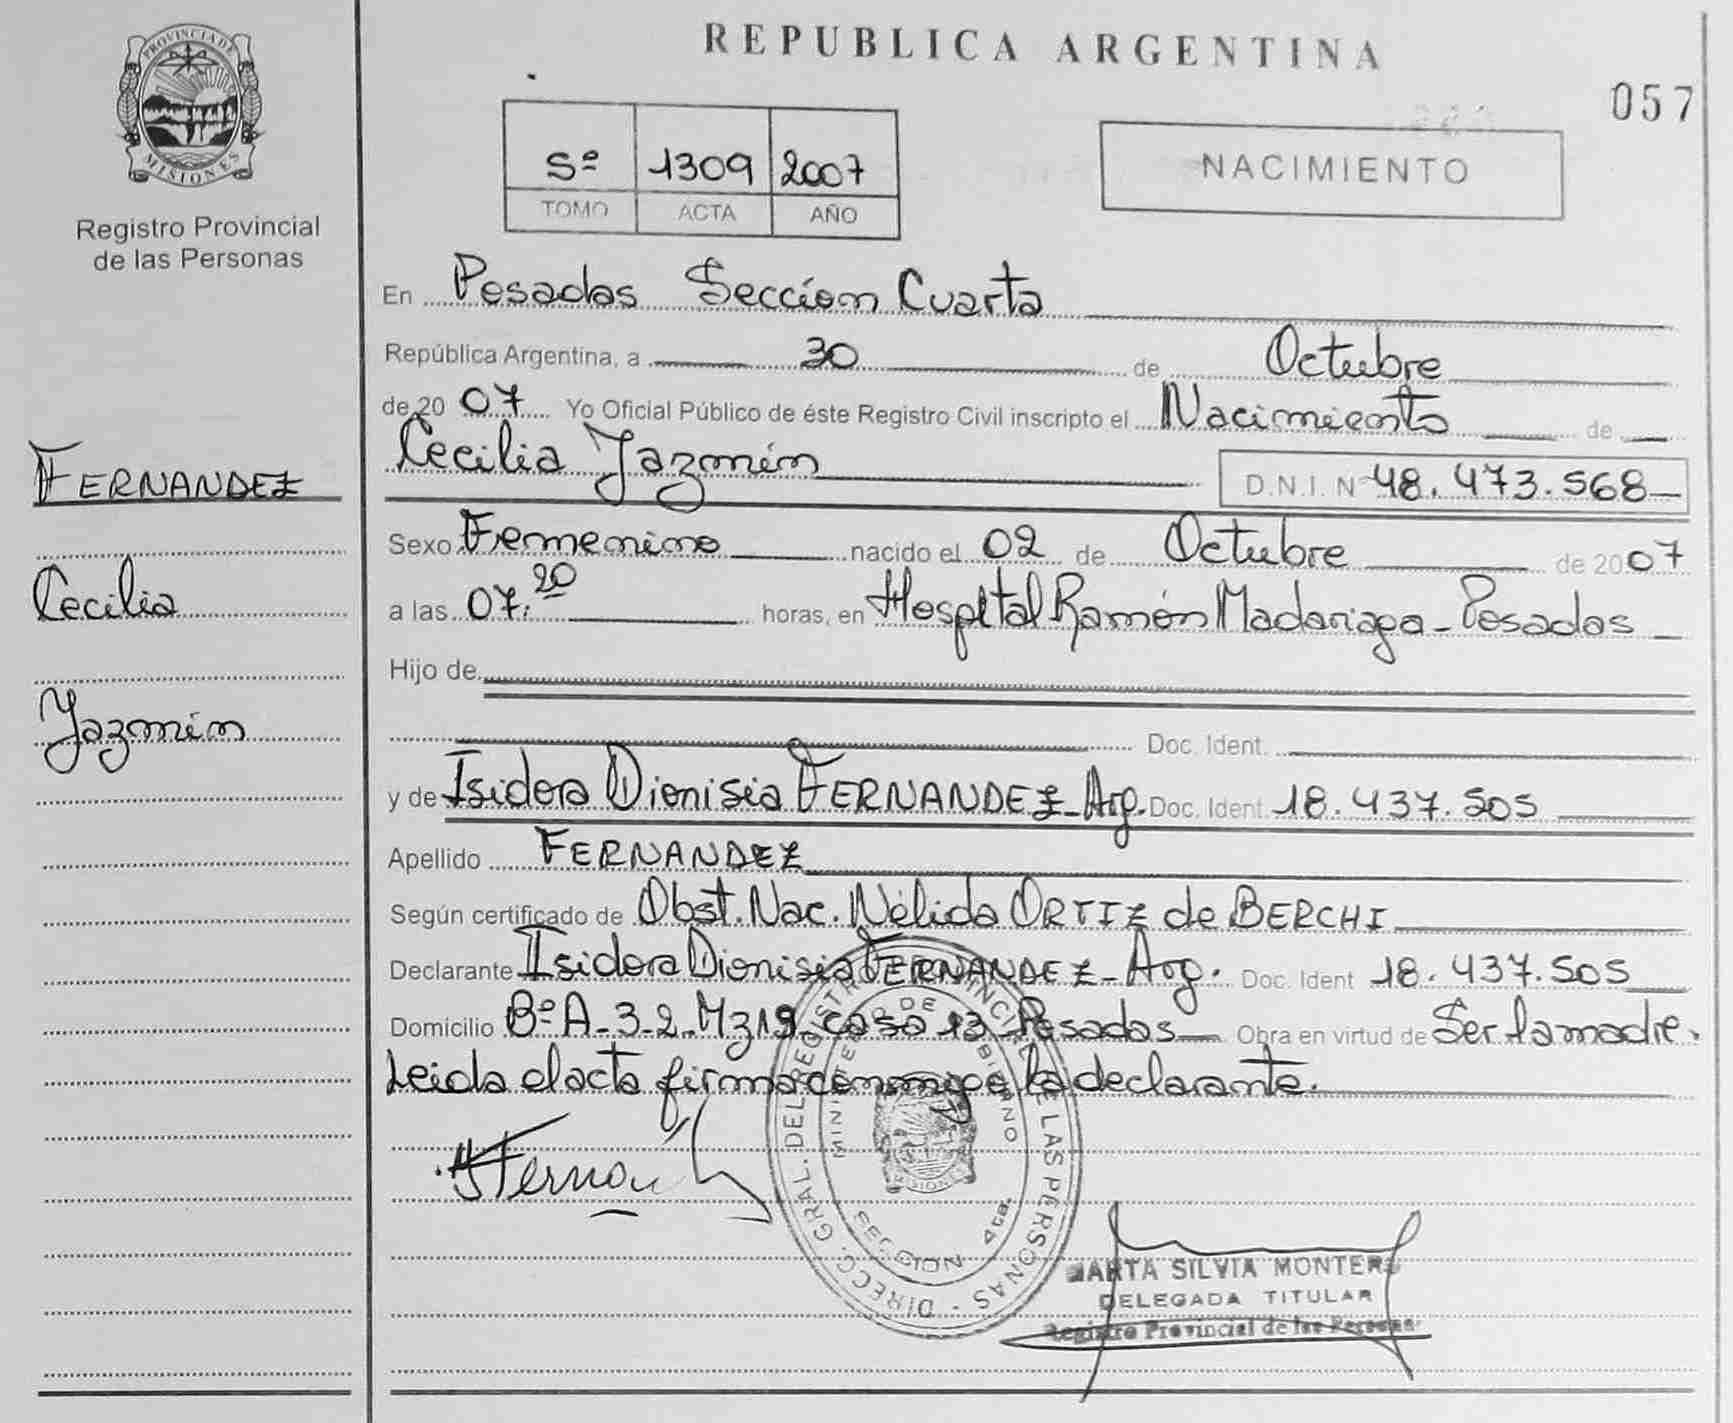 PROVINCIA DE
MISIONES
Registro Provincial
de las Personas
FERNANDEZ
Cecilia
Yazmín
REPUBLICA ARGENTINA
057
5º 1309 2007
TOMO ACTA AÑO
NACIMIENTO
En Posadas Sección Cuarta
República Argentina, a 30 de Octubre
de 20 07 Yo Oficial Público de éste Registro Civil inscripto el Nacimiento de
Cecilia Yazmín D.N.I. Nº 48.473.568
Sexo Femenino nacido el 02 de Octubre de 2007
a las 07:20 horas, en Hospital Ramón Madariaga - Posadas
Hijo de
Doc. Ident.
y de Isidora Dionisia FERNANDEZ - Arg. Doc. Ident. 18.437.505
Apellido FERNANDEZ
Según certificado de Obst. Nac. Nélida ORTIZ de BERCHI
Declarante Isidora Dionisia FERNANDEZ - Arg. Doc. Ident 18.437.505
Domicilio Bº A-3-2 Mz 19 casa 13 Posadas Obra en virtud de Ser la madre.
Leida el acta firma conmigo la declarante.
DIRECC. GRAL. DEL REGISTRO PROVINCIAL DE LAS PERSONAS
MINISTERIO DE GOBIERNO
MISIONES
SECCION 4ta.
MARTA SILVIA MONTERO
DELEGADA TITULAR
Registro Provincial de las Personas